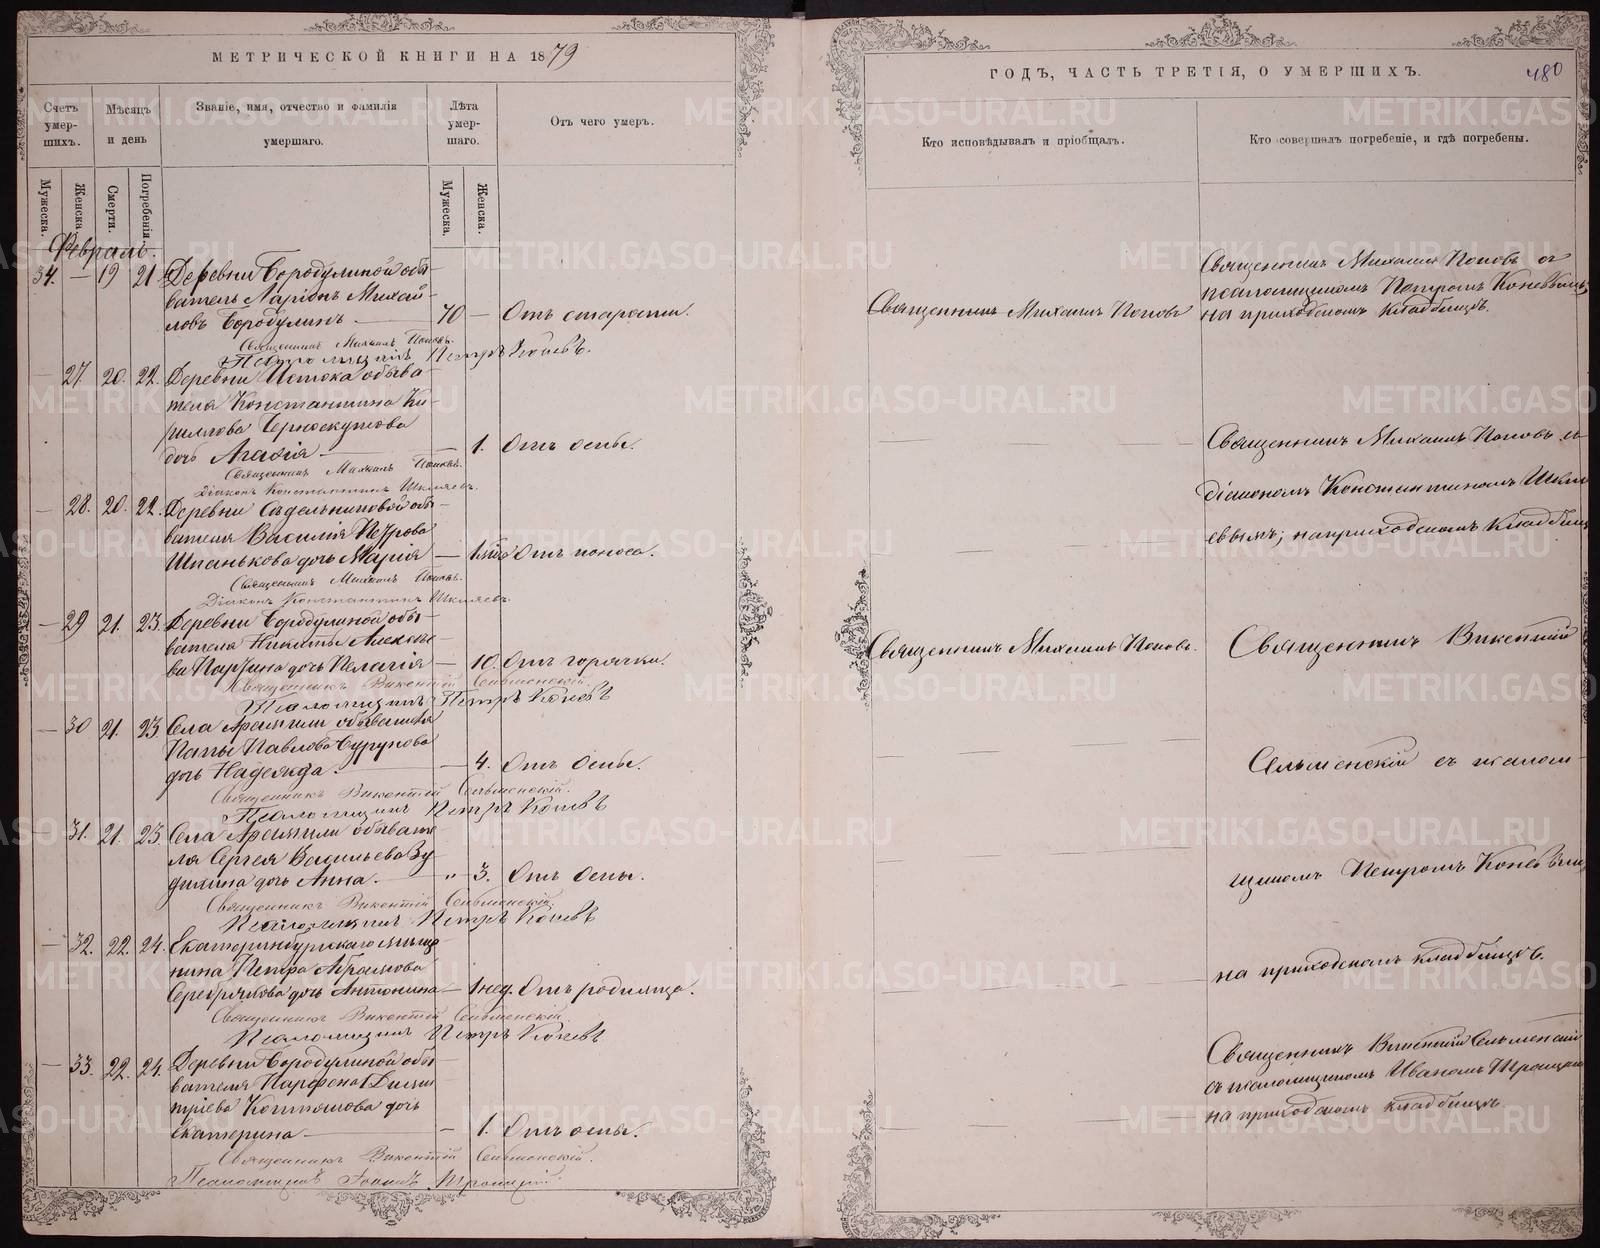 МЕТРИЧЕСКОЙ КНИГИ НА 1879
Счетъ умер-шихъ.
Мѣсяцъ и день
Званіе, имя, отчество и фамилія умершаго.
Лѣта умер-шаго.
Отъ чего умеръ.
Мужеска.
Женска.
Смерти.
Погребенія.
Мужеска.
Женска.
Февраль.
34. — 19 21. Деревни Бородулиной обы-
ватель Ларіонъ Михай-
ловъ Бородулинъ — 70 — Отъ старости.
Священникъ Михаилъ Поповъ.
Псаломщикъ Петръ Коневъ.
— 27. 20. 22. Деревни Истока обыва-
теля Константина Ки-
рилова Черноскутова
дочь Агафія — — 1. Отъ оспы.
Священникъ Михаилъ Поповъ.
Діаконъ Константинъ Шкляевъ.
— 28. 20. 22. Деревни Садельниковой обы-
вателя Василія Петрова
Шпанькова дочь Марія — Отъ поноса.
Священникъ Михаилъ Поповъ.
Діаконъ Константинъ Шкляевъ.
— 29 21. 23. Деревни Бородулиной обы-
вателя Никиты
дочь Пелагія — 10. Отъ горячки.
Священникъ Викентій Сельменскій.
Псаломщикъ Петръ Коневъ
— 30 21. 23. Села Арамили обывателя
Павлова
дочь Надежда. — 4. Отъ Оспы.
Священникъ Викентій Сельменскій.
Псаломщикъ Петръ Коневъ
31. 21. 23. Села Арамили обывате-
ля Сергея Васильева
дочь Анна. — „ — 3. Отъ Оспы.
Священникъ Викентій Сельменскій.
Псаломщикъ Петръ Коневъ
— 32. 22. 24. Екатеринбургскаго мѣща-
нина Петра Абрамова
Серебрякова дочь Антонина — 1 нед. Отъ родимца.
Священникъ Викентій Сельменскій.
Псаломщикъ Петръ Коневъ
— 33. 22. 24. Деревни Бородулиной обы-
вателя Парфена Дими-
тріева дочь
Екатерина — — 1. Отъ оспы.
Священникъ Викентій Сельменскій.
Псаломщикъ Іоаннъ Троицкій
ГОДЪ, ЧАСТЬ ТРЕТІЯ, О УМЕРШИХЪ.
480
Кто исповѣдывалъ и пріобщалъ.
Кто совершалъ погребеніе, и гдѣ погребены.
Священникъ Михаилъ Поповъ
Священникъ Михаилъ Поповъ съ
псаломщикомъ Петромъ Коневымъ
на приходскомъ кладбищѣ.
Священникъ Михаилъ Поповъ съ
діакономъ Константиномъ Шкля-
евымъ; на приходскомъ кладбищѣ
Священникъ Михаилъ Поповъ.
Священникъ Викентій
Сельменскій съ псалом-
щикомъ Петромъ Коневымъ
на приходскомъ кладбищѣ.
Священникъ Викентій Сельменскій
съ псаломщикомъ Иваномъ Троицкимъ
на приходскомъ кладбищѣ.
METRIKI.GASO-URAL.RU